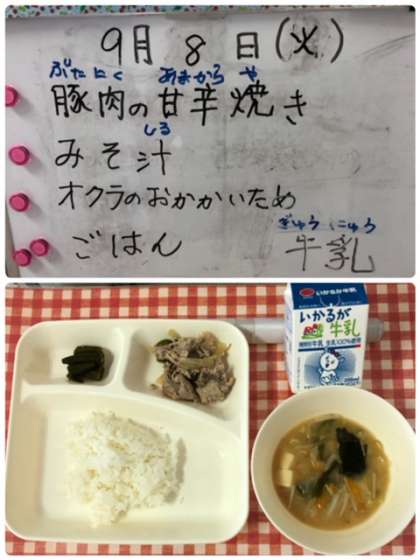 9月 8 日(火)
ぶたにく あまから や
豚肉の甘辛焼き
しる
みそ汁
オクラのおかかいため
ぎゅうにゅう
ごはん 牛乳
いかるが牛乳
いかるが
牛乳